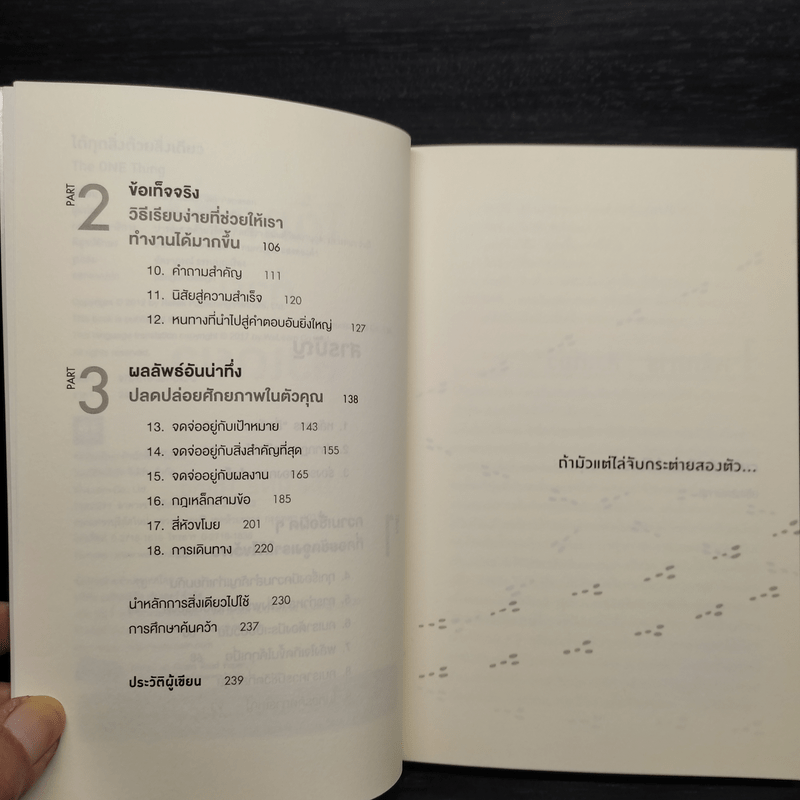 PART 2
ข้อเท็จจริง
วิธีเรียบง่ายที่ช่วยให้เรา
ทำงานได้มากขึ้น 106
10. คำถามสำคัญ 111
11. นิสัยสู่ความสำเร็จ 120
12. หนทางที่นำไปสู่คำตอบอันยิ่งใหญ่ 127
PART 3
ผลลัพธ์อันน่าทึ่ง
ปลดปล่อยศักยภาพในตัวคุณ 138
13. จดจ่ออยู่กับเป้าหมาย 143
14. จดจ่ออยู่กับสิ่งสำคัญที่สุด 155
15. จดจ่ออยู่กับผลงาน 165
16. กฎเหล็กสามข้อ 185
17. สี่หัวขโมย 201
18. การเดินทาง 220
นำหลักการสิ่งเดียวไปใช้ 230
การศึกษาค้นคว้า 237
ประวัติผู้เขียน 239
ถ้ามัวแต่ไล่จับกระต่ายสองตัว...